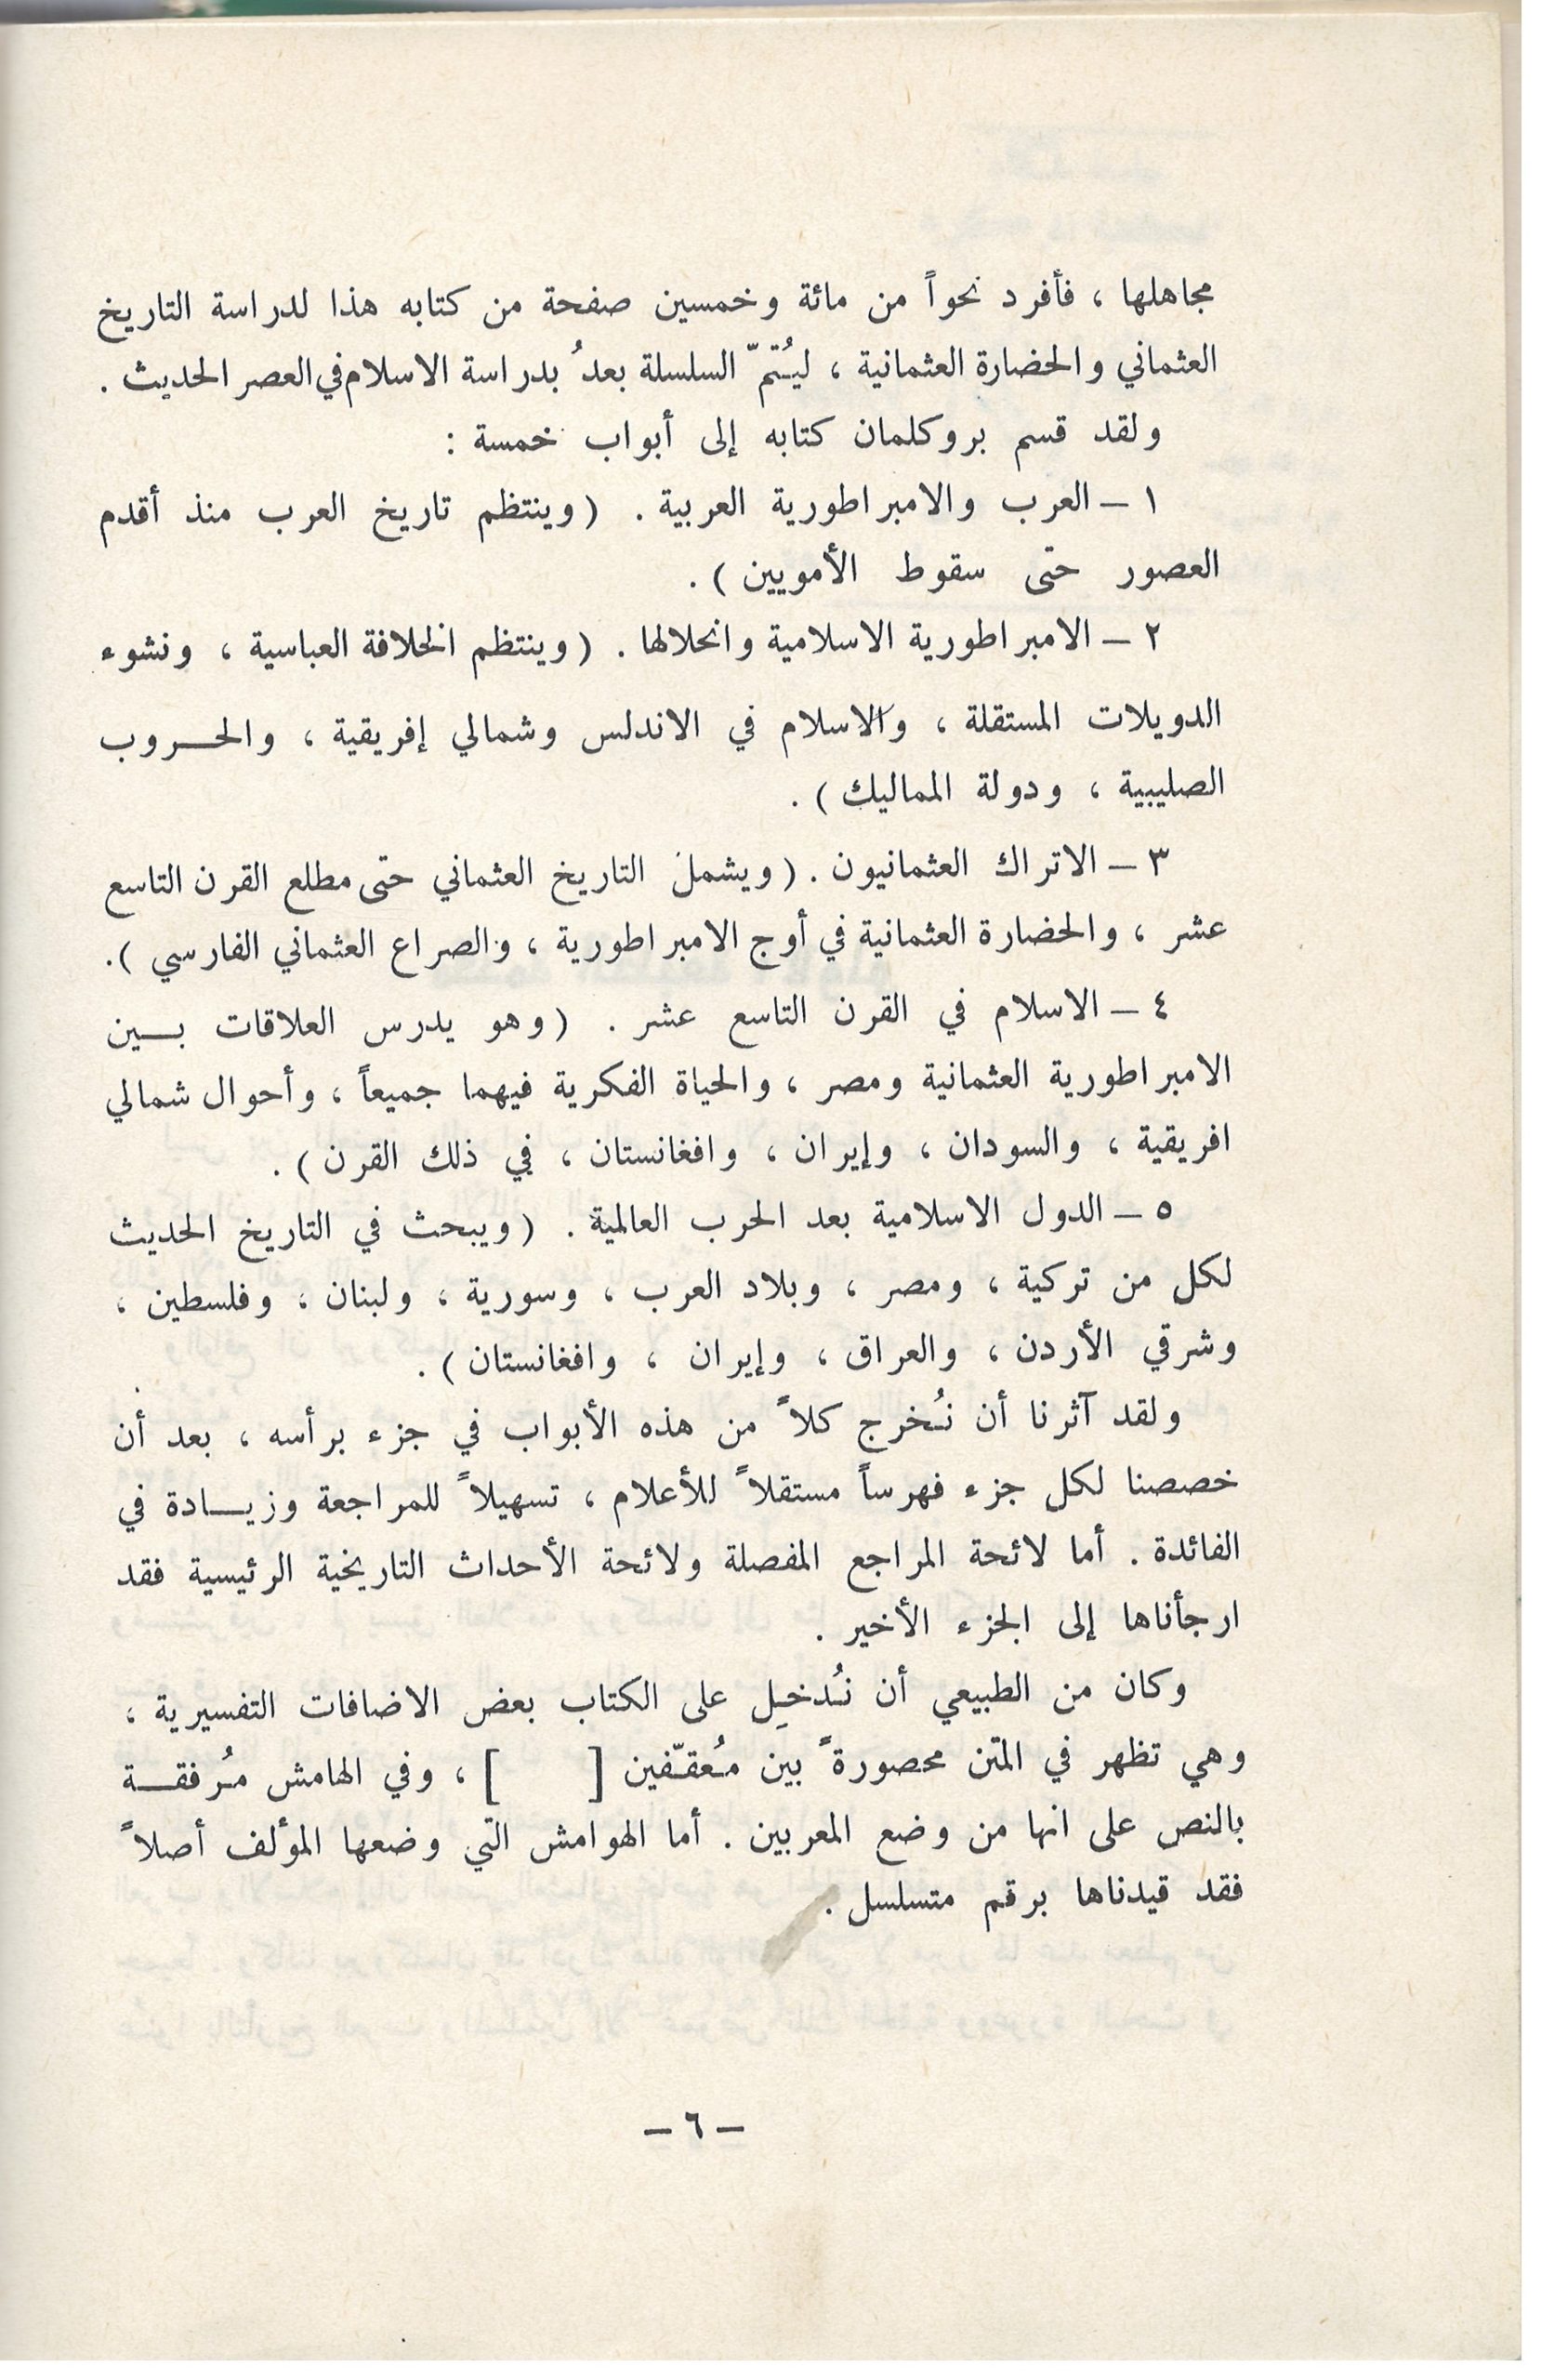 مجاهلها ، فأفرد نحواً من مائة وخمسين صفحة من كتابه هذا لدراسة التاريخ
العثماني والحضارة العثمانية ، ليُتمّ السلسلة بعدُ بدراسة الاسلام في العصر الحديث .
ولقد قسم بروكلمان كتابه إلى أبواب خمسة :
١ – العرب والامبراطورية العربية . ( وينتظم تاريخ العرب منذ أقدم
العصور حتى سقوط الأمويين ) .
٢ – الامبراطورية الاسلامية وانحلالها . ( وينتظم الخلافة العباسية ، ونشوء
الدويلات المستقلة ، والاسلام في الاندلس وشمالي إفريقية ، والحـروب
الصليبية ، ودولة المماليك ) .
٣ – الاتراك العثمانيون . ( ويشمل التاريخ العثماني حتى مطلع القرن التاسع
عشر ، والحضارة العثمانية في أوج الامبراطورية ، والصراع العثماني الفارسي ) .
٤ – الاسلام في القرن التاسع عشر . ( وهو يدرس العلاقات بـين
الامبراطورية العثمانية ومصر ، والحياة الفكرية فيهما جميعاً ، وأحوال شمالي
افريقية ، والسودان ، وإيران ، وافغانستان ، في ذلك القرن ) .
٥ – الدول الاسلامية بعد الحرب العالمية . ( ويبحث في التاريخ الحديث
لكل من تركية ، ومصر ، وبلاد العرب ، وسورية ، ولبنان ، وفلسطين ،
وشرقي الأردن ، والعراق ، وإيران ، وافغانستان ) .
ولقد آثرنا أن نُخرج كلاً من هذه الأبواب في جزء برأسه ، بعد أن
خصصنا لكل جزء فهرساً مستقلاً للأعلام ، تسهيلاً للمراجعة وزيـادة في
الفائدة . أما لائحة المراجع المفصلة ولائحة الأحداث التاريخية الرئيسية فقد
ارجأناها إلى الجزء الأخير .
وكان من الطبيعي أن نُدخِل على الكتاب بعض الاضافات التفسيرية ،
وهي تظهر في المتن محصورةً بين مُعقّفين [ ] ، وفي الهامش مُرفقـة
بالنص على انها من وضع المعربين . أما الهوامش التي وضعها المؤلف أصلاً
فقد قيدناها برقم متسلسل .
– ٦ –